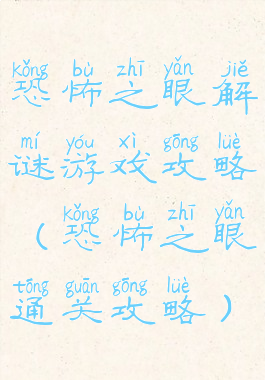 kǒng bù zhī yǎn jiě
恐怖之眼解
mí yóu xì gōng lüè
谜游戏攻略
kǒng bù zhī yǎn
(恐怖之眼
tōng guān gōng lüè
通关攻略)